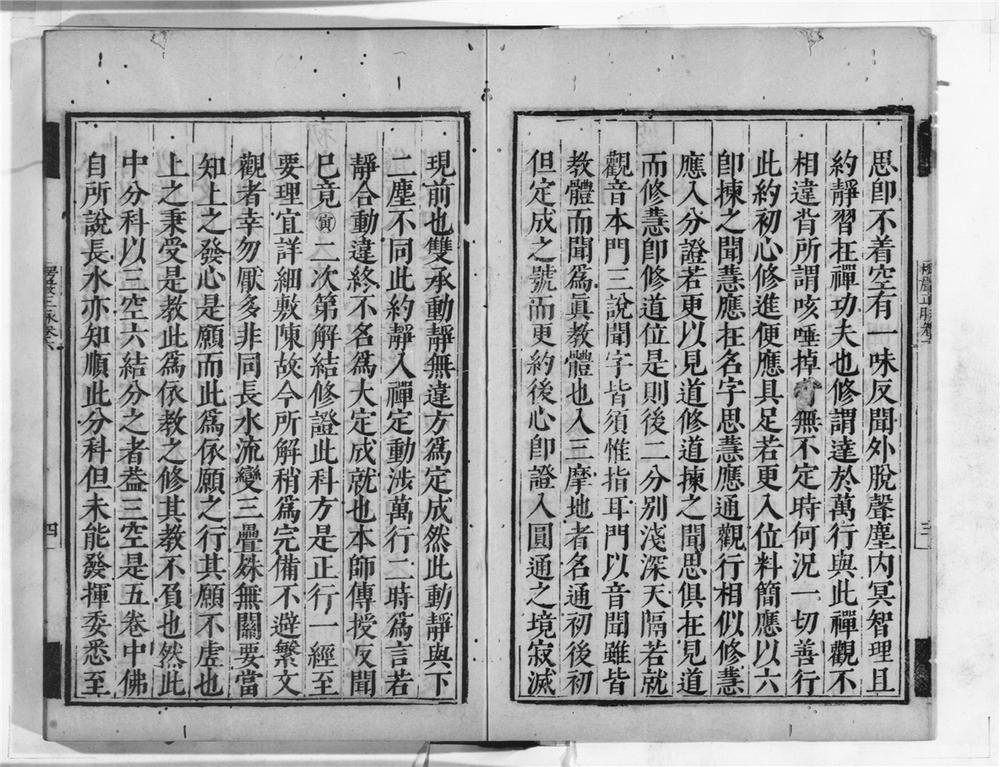 思卽不着空有一味反聞外脫聲塵內冥智理且
約靜習在禪功夫也修謂達於萬行與此禪觀不
相違背所謂咳唾掉臂無不定時何況一切善行
此約初心修進便應具足若更入位料簡應以六
卽揀之聞慧應在名字思慧應通觀行相似修慧
應入分證若更以見道修道揀之聞思俱在見道
而修慧卽修道位是則後二分别淺深天隔若就
觀音本門三說聞字皆須惟指耳門以音聞雖皆
教體而聞爲眞教體也入三摩地者名通初後初
但定成之號而更約後心卽證入圓通之境寂滅
三
現前也雙承動靜無違方爲定成然此動靜與下
二塵不同此約靜入禪定動涉萬行二時爲言若
靜合動違終不名爲大定成就也本師傳授反聞
巳竟㊞二次第解結修證此科方是正行一經至
要理宜詳細敷陳故今所解稍爲完備不避繁文
觀者幸勿厭多非同長水流變三疊姝無關要當
知上之發心是願而此爲依願之行其願不虚也
上之秉受是教此爲依教之修其教不負也然此
中分科以三空六結分之者葢三空是五卷中佛
自所說長水亦知順此分科但未能發揮委悉至
四